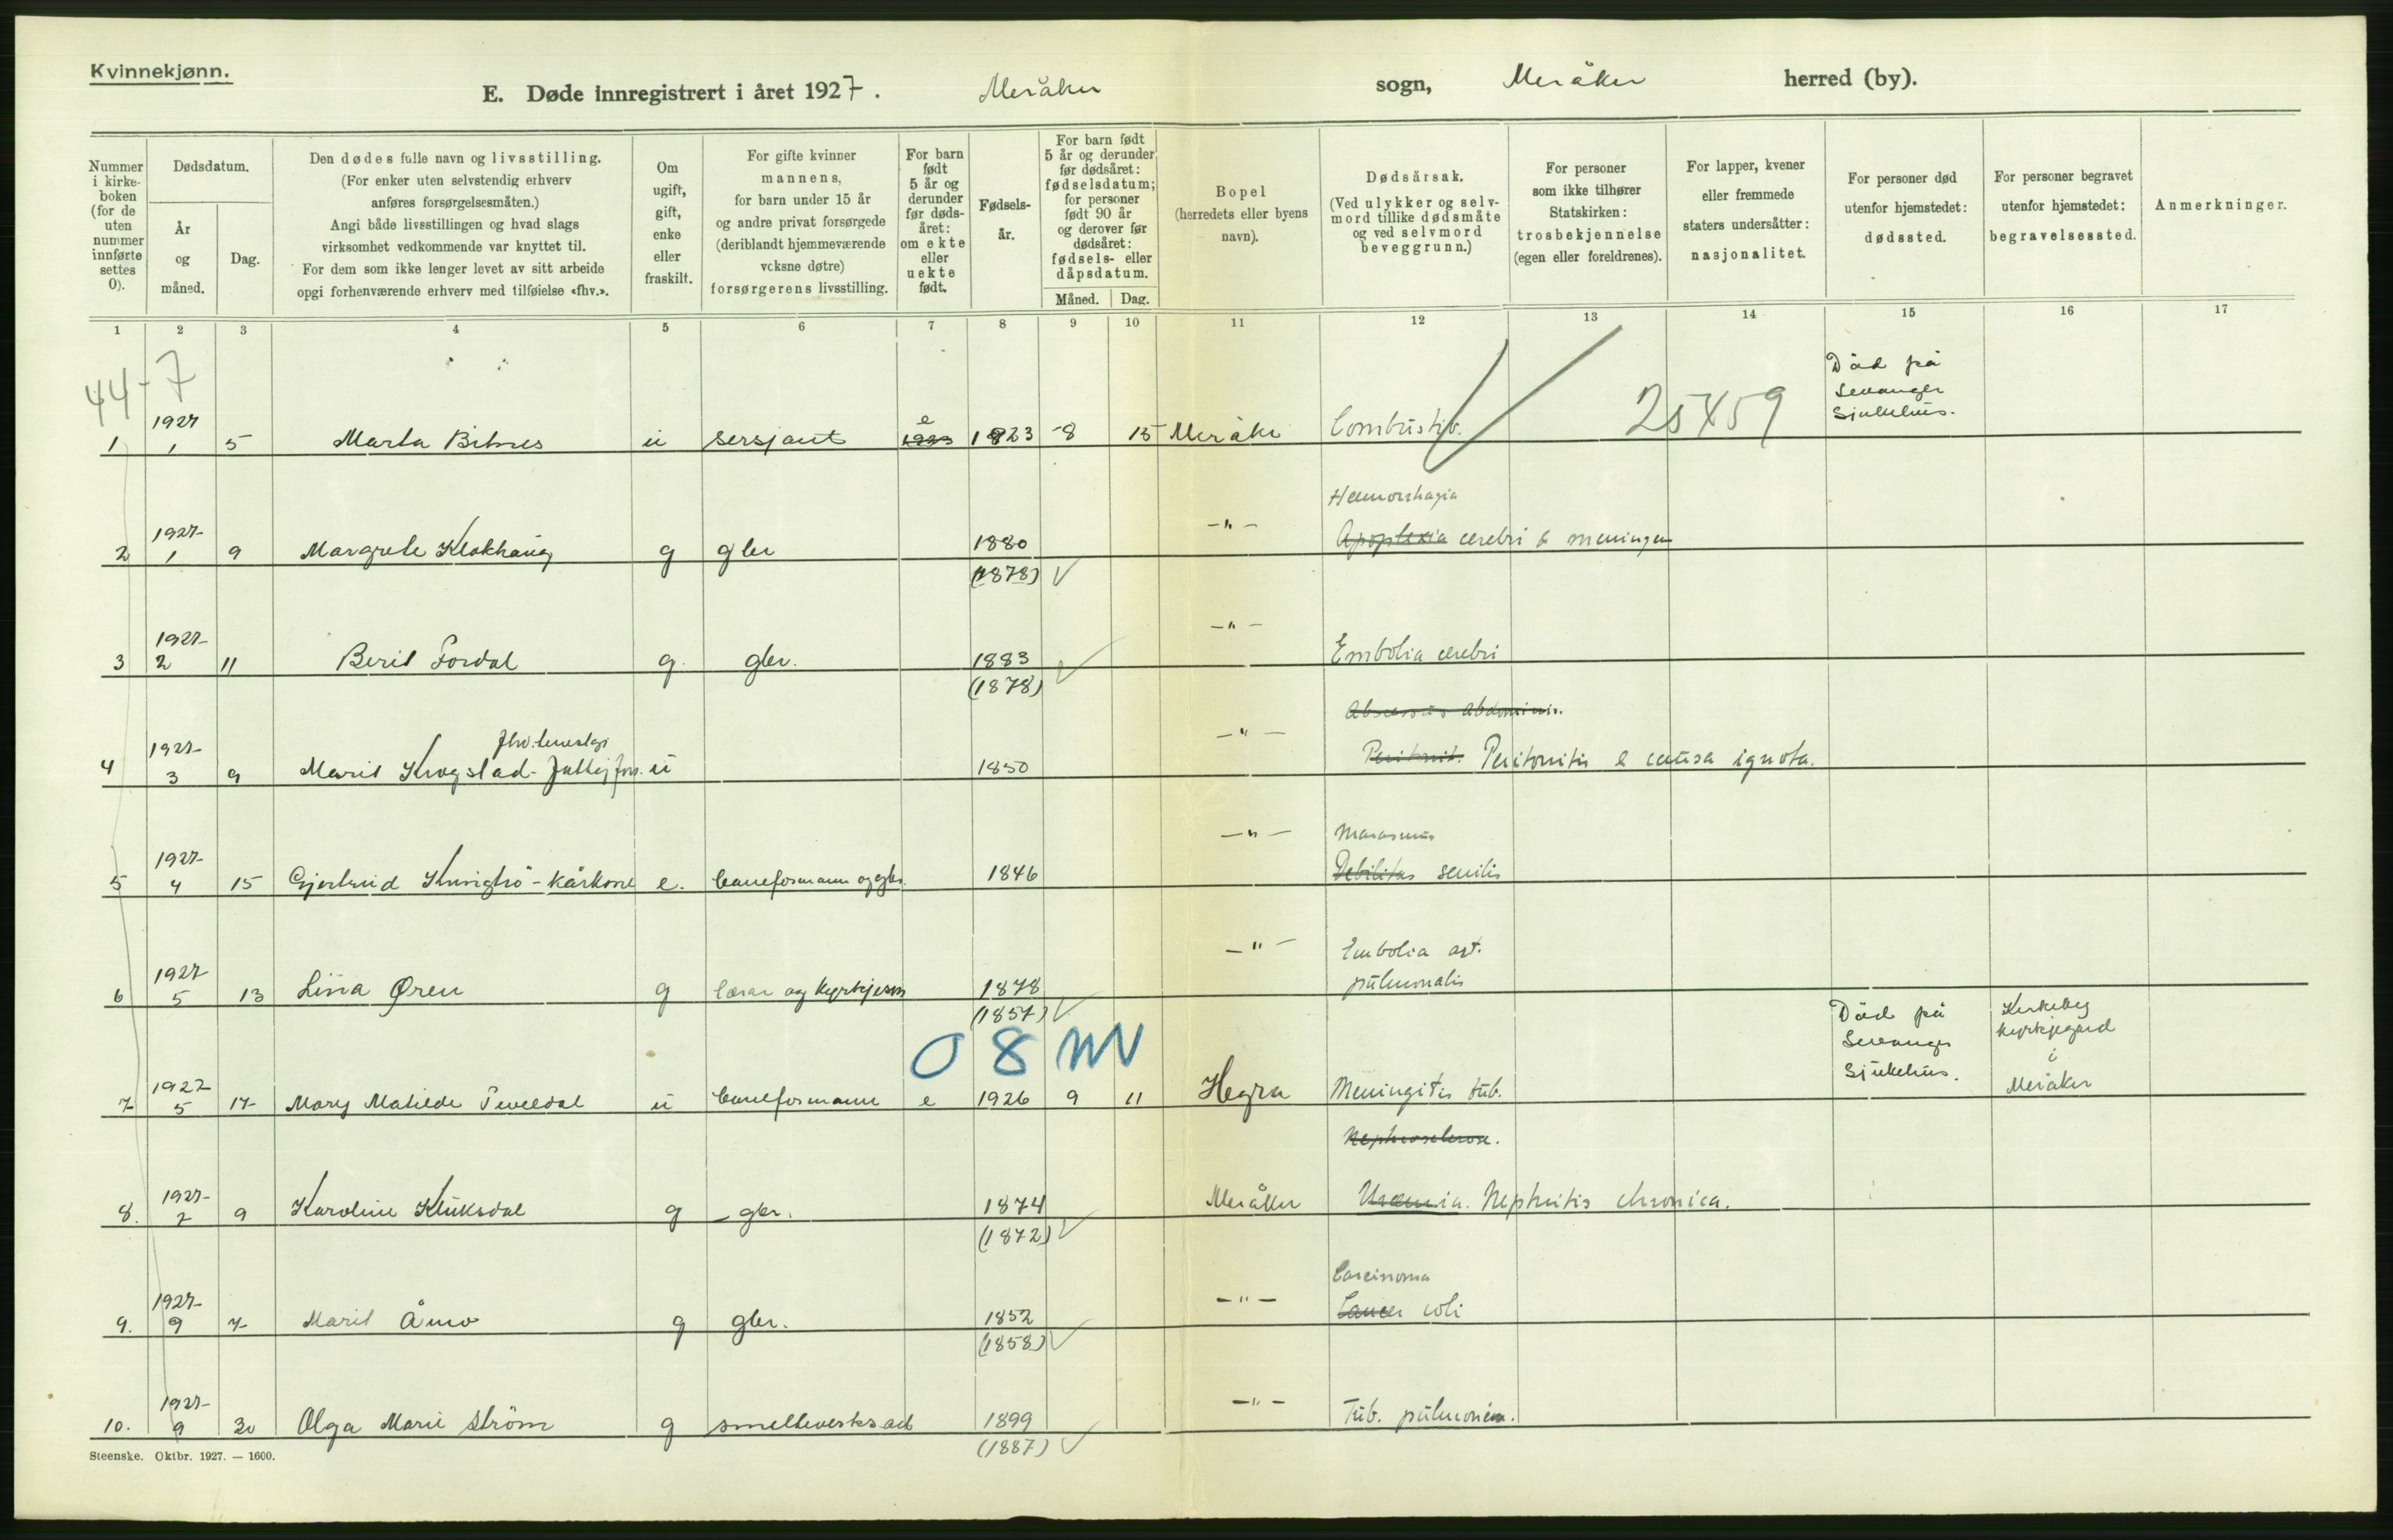 Kvinnekjønn.
E. Døde innregistrert i året 1927. Meråker sogn, Meråker herred (by).
Nummer i kirkeboken (for de uten nummer innførte settes 0).
Dødsdatum.
År og måned.
Dag.
Den dødes fulle navn og livsstilling.
(For enker uten selvstendig erhverv
anføres forsørgelsesmåten.)
Angi både livsstillingen og hvad slags
virksomhet vedkommende var knyttet til.
For dem som ikke lenger levet av sitt arbeide
opgi forhenværende erhverv med tilføielse «fhv.».
Om ugift, gift, enke eller fraskilt.
For gifte kvinner
mannens,
for barn under 15 år
og andre privat forsørgede
(deriblandt hjemmeværende
vcksne døtre)
forsørgerens livsstilling.
For barn født 5 år og derunder før døds-året: om ekte eller uekte født.
Fødsels-år.
For barn født 5 år og derunder før dødsåret: fødselsdatum; for personer født 90 år og derover før dødsåret: fødsels- eller dåpsdatum.
Måned. Dag.
Bopel
(herredets eller byens
navn).
Dødsårsak.
(Ved ulykker og selv-
mord tillike dødsmåte
og ved selvmord
beveggrunn.)
For personer
som ikke tilhører
Statskirken:
trosbekjennelse
(egen eller foreldrenes).
For lapper, kvener
eller fremmede
staters undersåtter:
nasjonalitet.
For personer død
utenfor hjemstedet:
dødssted.
For personer begravet
utenfor hjemstedet:
begravelsessted.
Anmerkninger.
1 2 3 4 5 6 7 8 9 10 11 12 13 14 15 16 17
44-7
Död på
Levanger
Sjukehus.
25459
1 1927 1 5 Marta u sersjant e 1923 1923 8 15 Meråke
Hæmorrhagia
2 1927 1 9 Margrete Klokhaug g gbr 1880 -"- Apoplexia cerebri & meninger
(1878)
3 1927 2 11 Berit Fordal g. gbr. 1883 -"- Embolia cerebri
(1878)
Abscessus abdominis.
4 1927 3 9 Marit Krogstad u 1850 -"- Peritonit. Peritonitis e causa ignota.
Marasmus
5 1927 4 15 Gjertrud e. baneformann og gbr. 1846 -"- Debilitas senilis
6 1927 5 13 Lina Øren g lærar og 1878 -"- Embolia art.
pulmonalis
(1857)
0 8
Död på
Levanger
Sjukehus.
Kirkeby
kyrkjegard
i
Meråker
7 1927 5 17 Mary Matilde Teveldal u baneformann e 1926 9 11 Hegra Meningitis tub.
Nephrosclerose.
8. 1927 7 9 Karoline Kluksdal g gbr. 1874 Meråker Uræmia. Nephritis chronica.
(1872)
Carcinoma
9. 1927 9 7 Marit Åmo g gbr. 1852 -"- Cancer coli
(1858)
10. 1927 9 30 Olga Marie Ström g smelteverksarb 1899 -"- Tub. pulmonum.
(1887)
Steenske. Oktbr. 1927. — 1600.